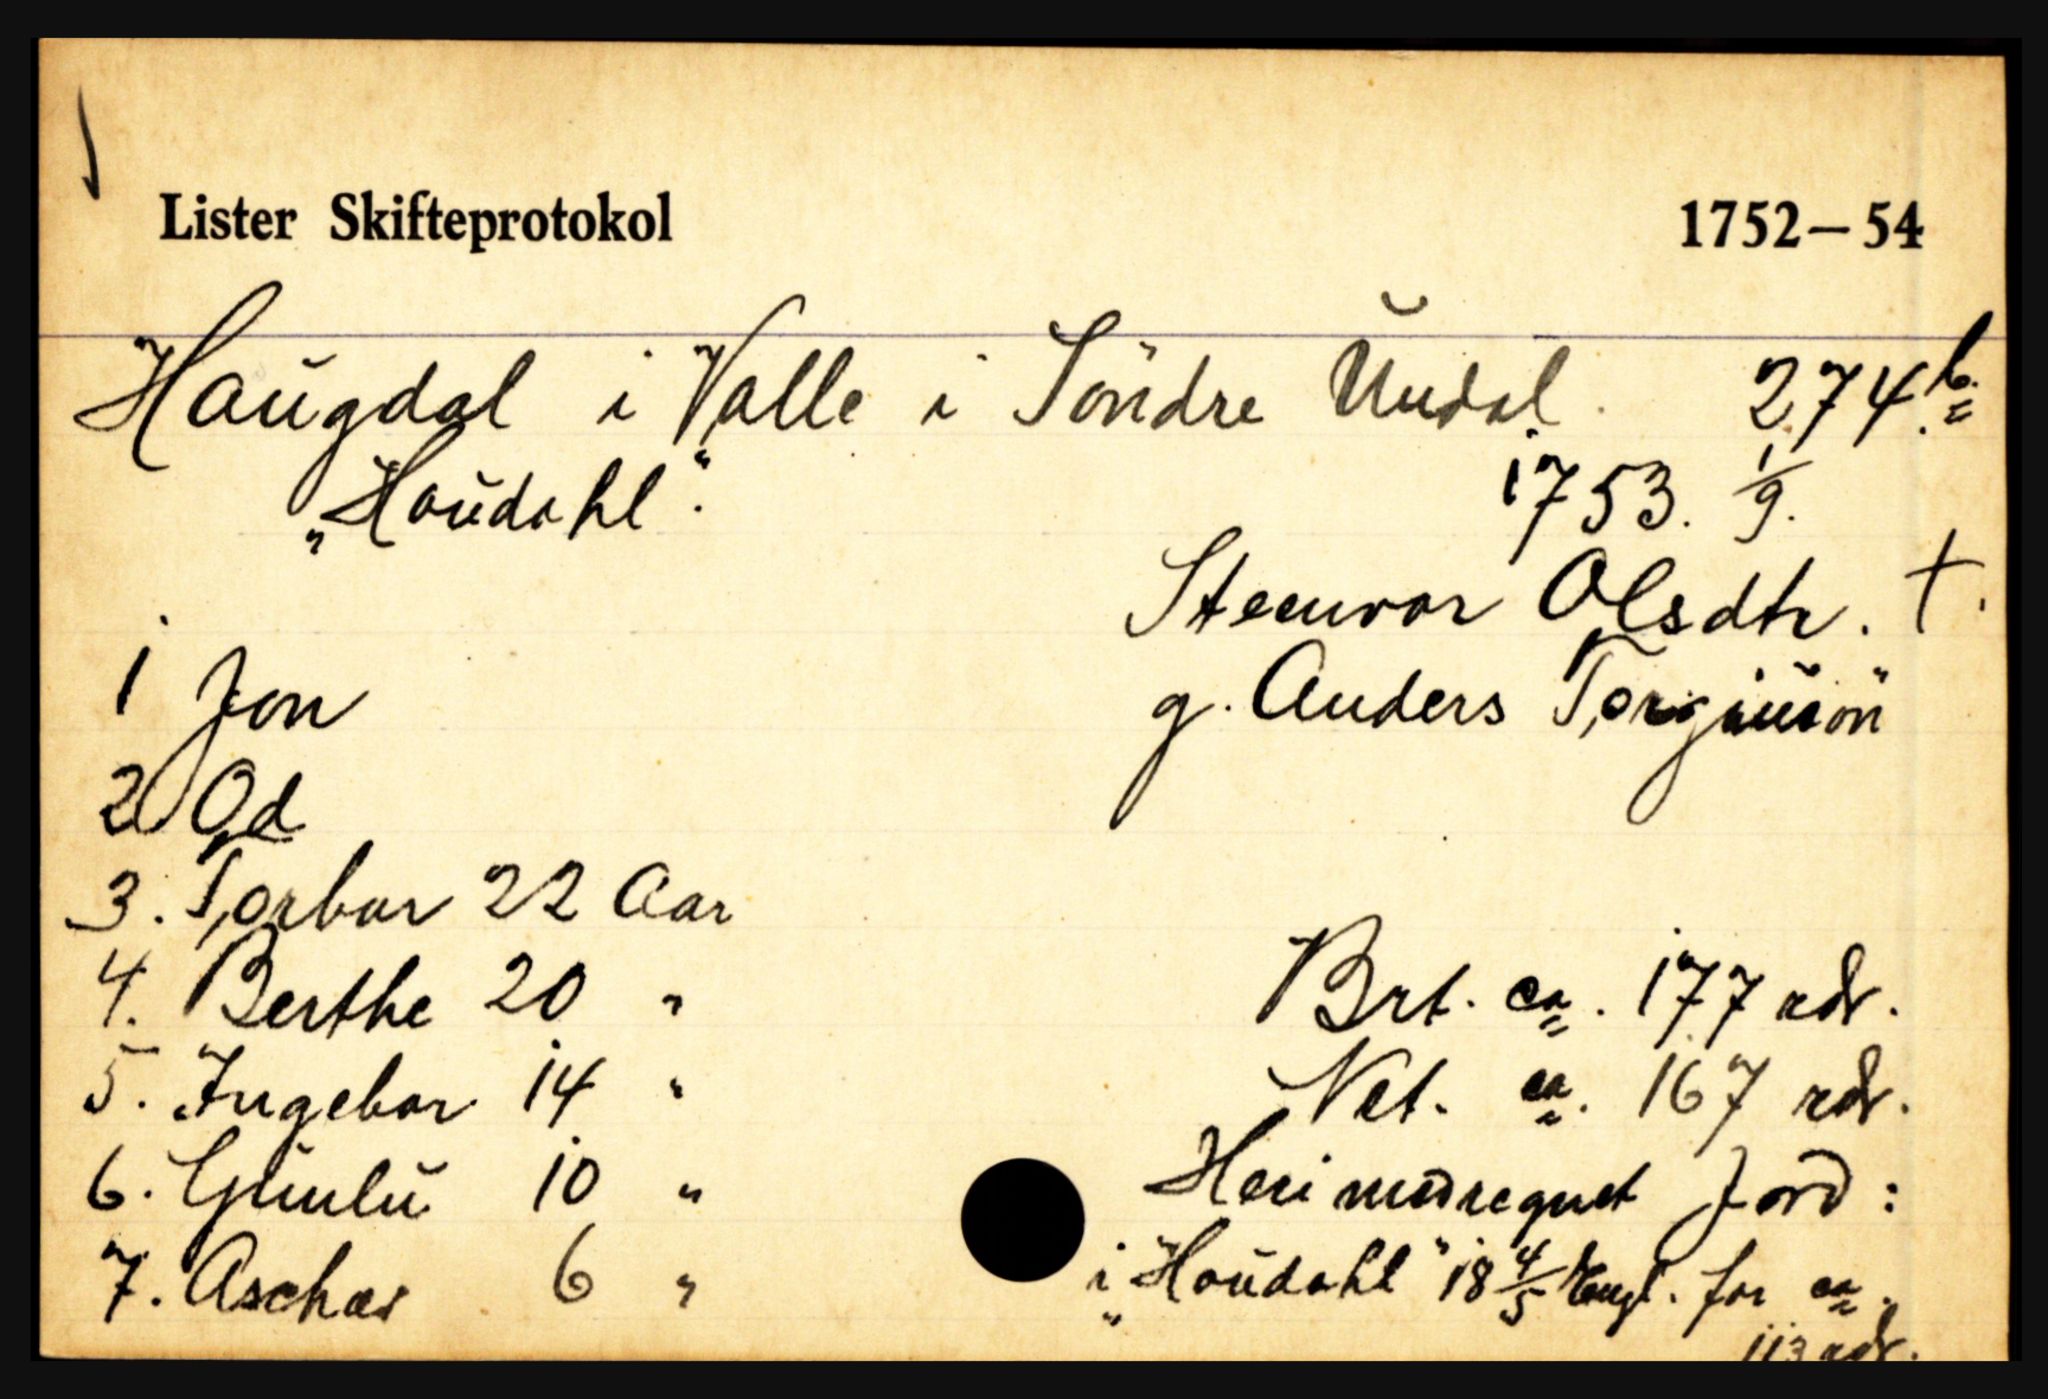 Lister Skifteprotokol 1752—54
Haugdal i Valle i Söndre Undal. 274 b.
"Houdahl". 1753. 1/9.
Steenvor Olsdtr. †.
1 Jon
g. Anders Torgiusön
2 Od
3. Torbor 22 Aar
4. Berthe 20 "
Brt. ca. 177 rdr.
5. Ingebor 14 "
Net. ca. 167 rdr.
6. Gunlu 10 "
Heri medregnet Jord:
7. Aschas 6 "
i "Houdahl" 18 4/5 Engl. for ca.
113 rdr.